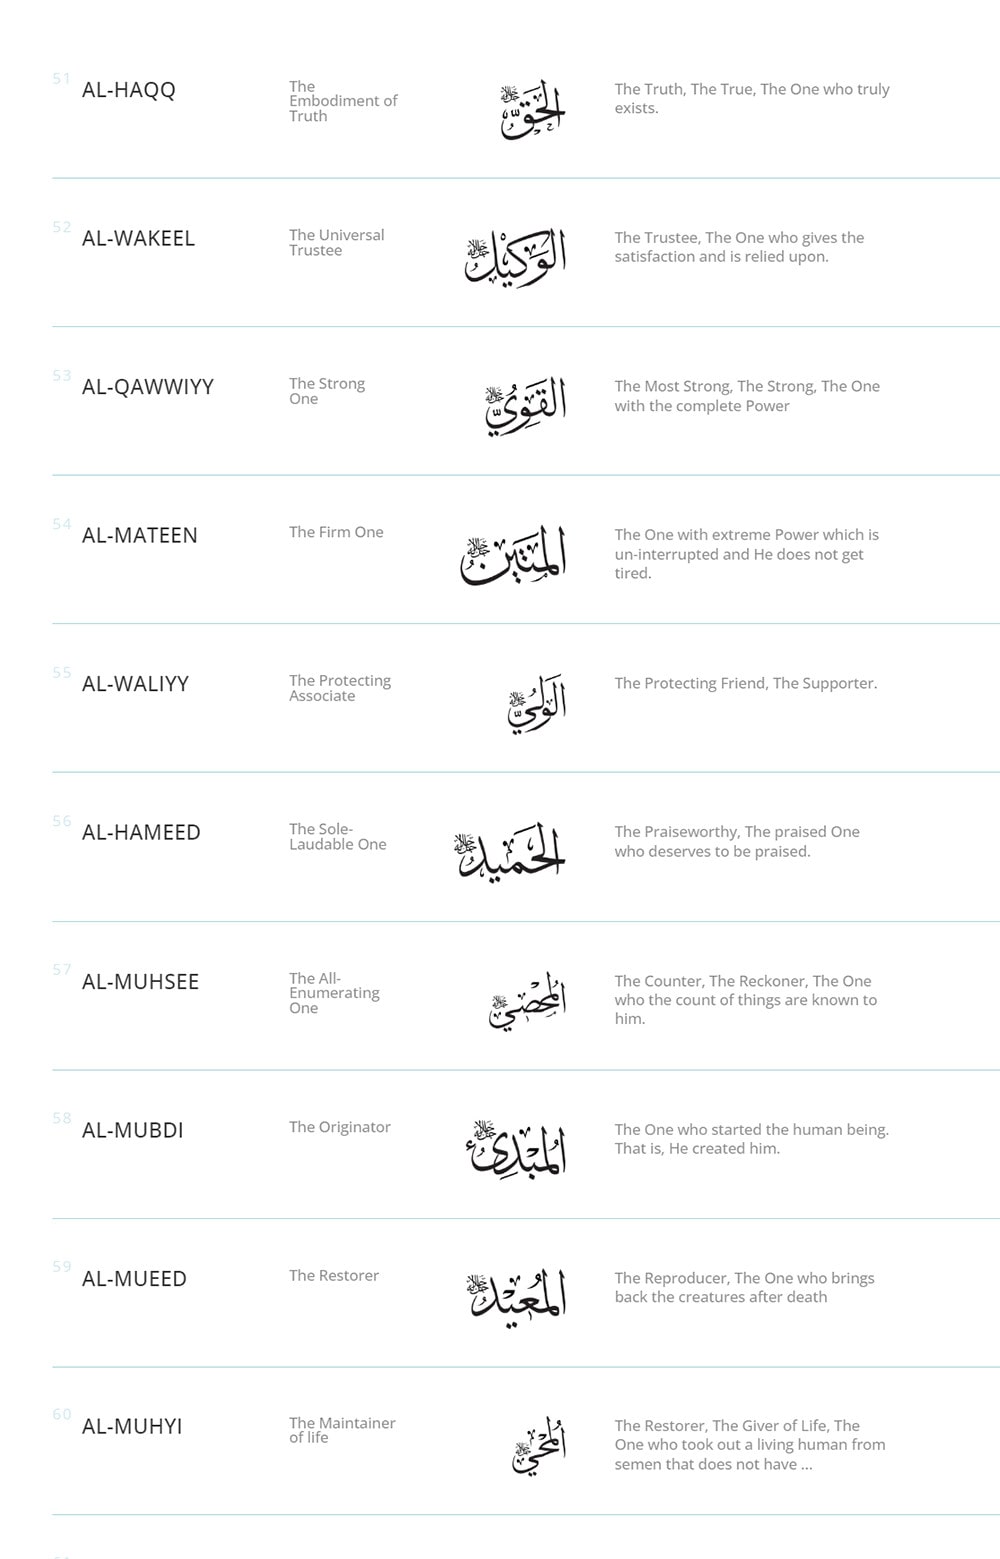 51
AL-HAQQ
The
Embodiment of
Truth
الحَقّ جل جلاله
The Truth, The True, The One who truly
exists.
52
AL-WAKEEL
The Universal
Trustee
الوَكيل جل جلاله
The Trustee, The One who gives the
satisfaction and is relied upon.
53
AL-QAWWIYY
The Strong
One
القَوِيّ جل جلاله
The Most Strong, The Strong, The One
with the complete Power
54
AL-MATEEN
The Firm One
المَتين جل جلاله
The One with extreme Power which is
un-interrupted and He does not get
tired.
55
AL-WALIYY
The Protecting
Associate
الوَليّ جل جلاله
The Protecting Friend, The Supporter.
56
AL-HAMEED
The Sole-
Laudable One
الحَميد جل جلاله
The Praiseworthy, The praised One
who deserves to be praised.
57
AL-MUHSEE
The All-
Enumerating
One
المُحصي جل جلاله
The Counter, The Reckoner, The One
who the count of things are known to
him.
58
AL-MUBDI
The Originator
المُبْدِئ جل جلاله
The One who started the human being.
That is, He created him.
59
AL-MUEED
The Restorer
المُعيد جل جلاله
The Reproducer, The One who brings
back the creatures after death
60
AL-MUHYI
The Maintainer
of life
المُحيي جل جلاله
The Restorer, The Giver of Life, The
One who took out a living human from
semen that does not have ...